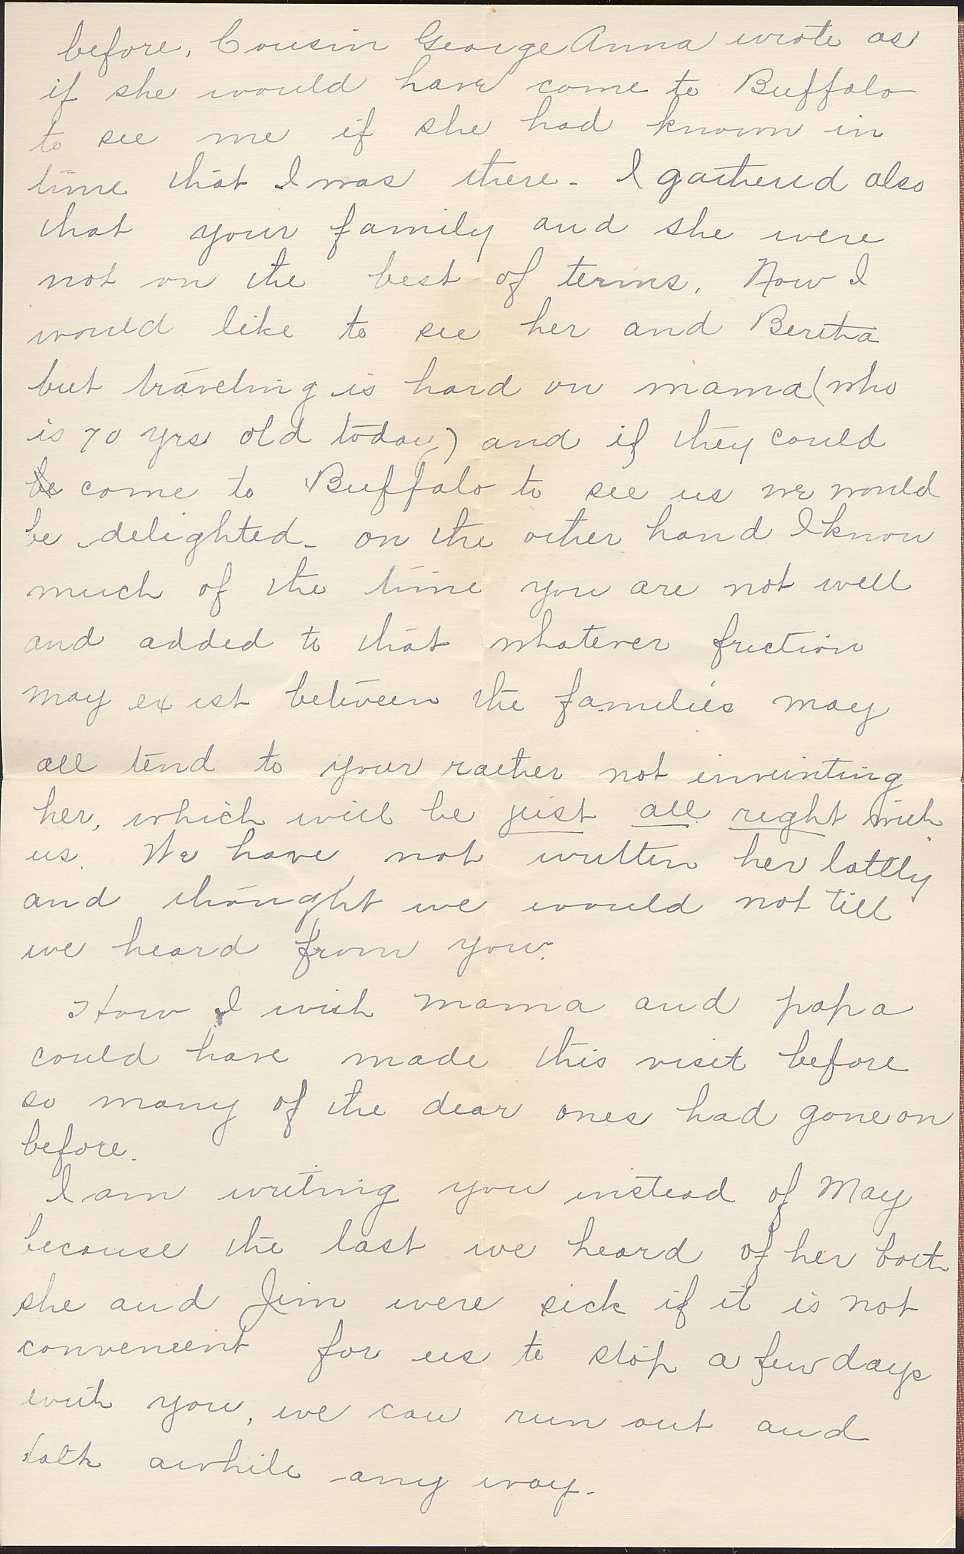 before. Cousin George Anna wrote as
if she would have come to Buffalo
to see me if she had known in
time that I was there - I gathered also
that your family and she were
not on the best of terms. Now I
would like to see her and Bertha
but traveling is hard on mama (who
is 70 yrs old today) and if they could
be come to Buffalo to see us we would
be delighted - on the other hand I know
much of the time you are not well
and added to that whatever friction
may exist between the families may
all tend to your rather not inviting
her, which will be just all right with
us. We have not written her lately
and thought we would not till
we heard from you.
How I wish mama and papa
could have made this visit before
so many of the dear ones had gone on
before.
I am writing you instead of May
because the last we heard of her both
she and Jim were sick if it is not
convenient for us to stop a few days
with you, we can run out and
talk awhile any way -